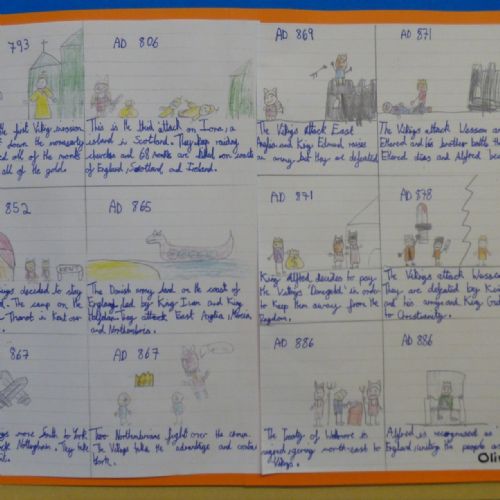 793
AD 806
AD 869
AD 871
the first Viking invasion
down the monastery
all of the monks
all of the gold.
This is the third attack on Iona, a
island in Scotland. They keep raiding
churches and 68 monks are killed
of England, Scotland, and Ireland.
The Vikings attack East
Anglia and King Edmund raises
an army but they are defeated
The Vikings attack Wessex
Ethered and his brother battle the
Ethered dies and Alfred
852
AD 865
AD 871
AD 878
decided to stay
The camp on the
Thanet in Kent
The Danish army land on the coast of
England led by King Ivan and King
Halfdan. They attack East Anglia, Mercia
and Northumbria.
King Alfred decides to pay
the Vikings 'Danegeld' in order
to keep them away from the
Kingdom.
The Vikings attack Wessex
They are defeated by King
and his army and King
to Christianity.
867
AD 867
AD 886
AD 886
move South to York
Nottingham. They take
Two Northumbrians fight over the crown.
The Vikings take the advantage and
York.
The Treaty of
signed, giving north-east to
Vikings.
Alfred is recognised as
England, uniting the people
Oli